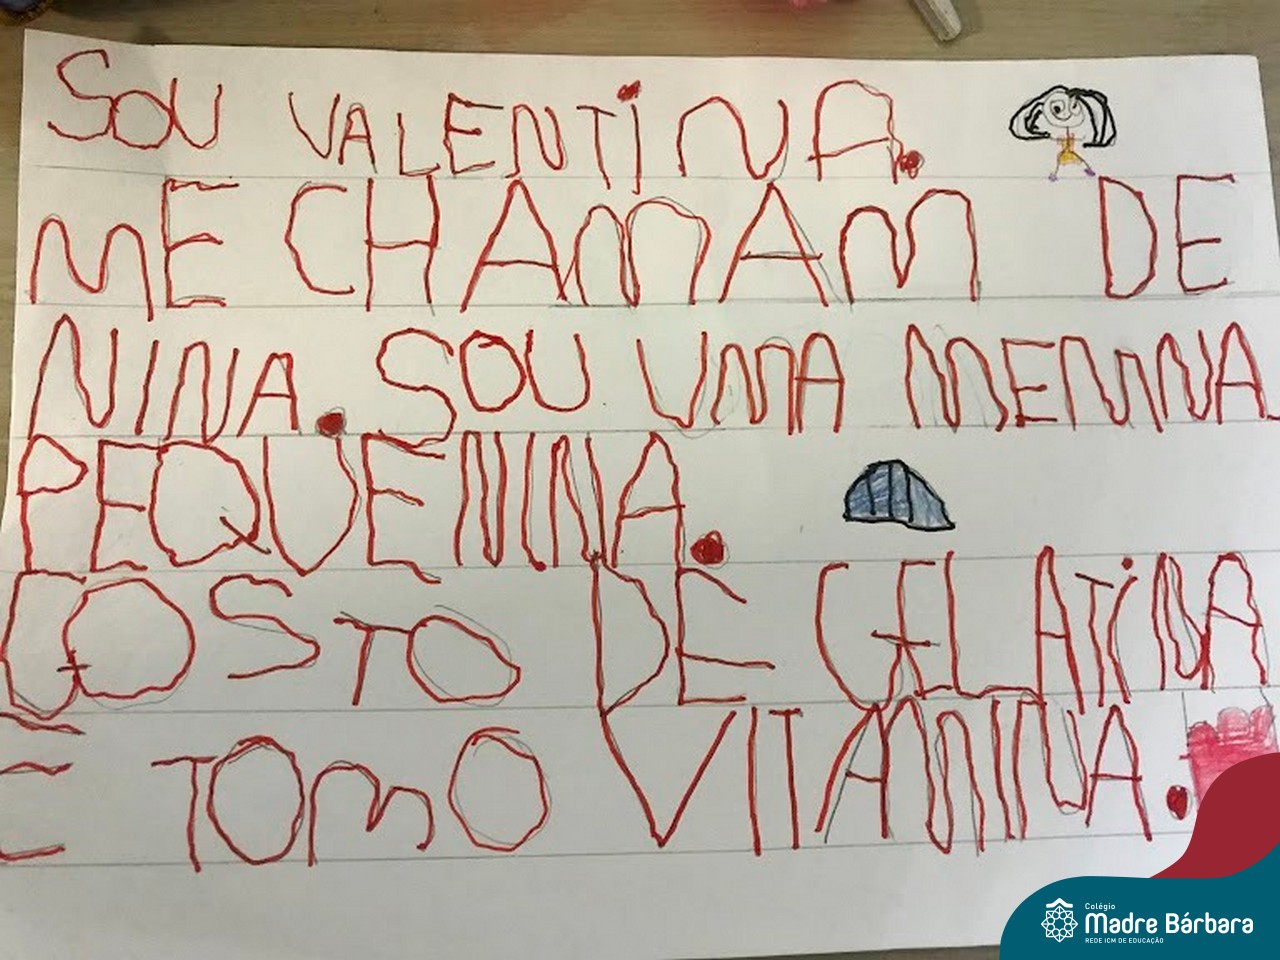 SOU VALENTiNA.
ME CHAMAM DE
NINA. SOU UMA MENINA
PEQUENINA.
GOSTO DE GELATiNA
E TOMO VITAMINA.
Colégio
Madre Bárbara
REDE ICM DE EDUCAÇÃO